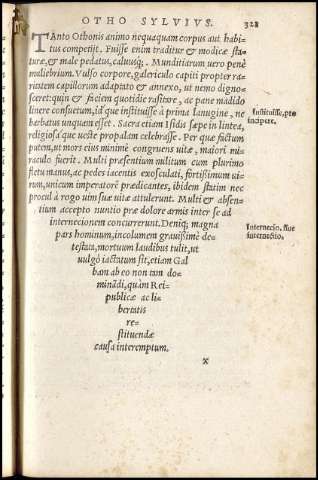 OTHO SYLVIVS. 328
TAnto Othonis animo nequaquam corpus aut habi-
tus competijt. Fuisse enim traditur & modicæ sta-
turæ, & male pedatus, caluusq́;. Munditiarum uero penè
muliebrium. Vulso corpore, galericulo capiti propter ra-
ritatem capillorum adaptato & annexo, ut nemo digno-
sceret: quin & faciem quotidie rasitare, ac pane madido
linere consuetum, id que instituisse à prima lanugine, ne
barbatus unquam esset. Sacra etiam Isidis sæpe in lintea,
religiosa q́ue ueste propalam celebrasse. Per quæ factum
putem, ut mors eius minimè congruens uitæ, maiori mi-
raculo fuerit. Multi præsentium militum cum plurimo
fletu manus, ac pedes iacentis exosculati, fortissimum ui-
rum, unicum imperatorē prædicantes, ibidem statim nec
procul à rogo uim suæ uitæ attulerunt. Multi & absen-
tium accepto nuntio præ dolore armis inter se ad
internecionem concurrerunt. Deniq; magna
pars hominum, incolumem grauissimè de-
testata, mortuum laudibus tulit, ut
uulgò iactatum sit, etiam Gal
bam ab eo non tam do-
minādi, quàm Rei-
publicæ ac li-
bertatis
re-
stituendæ
causa interemptum.
x
Instituisse, pro
incipere.
Internecio, siue
internicio.